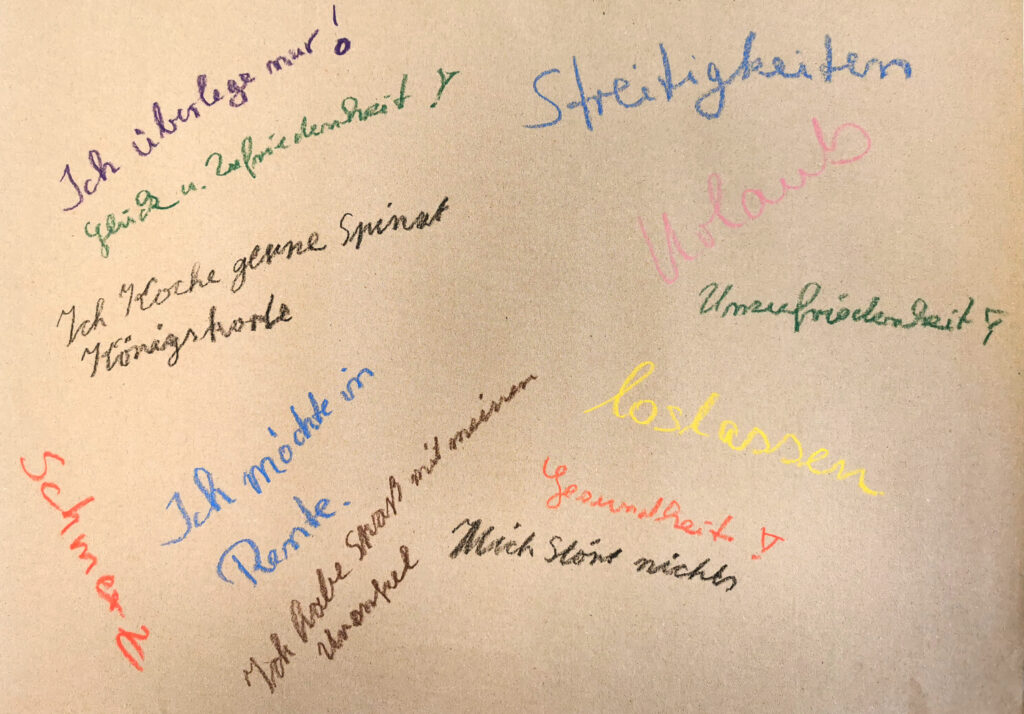 Ich überlege nur!
Glück u. Zufriedenheit!
Ich Koche gerne Spinat
Königstorte
Ich möchte in
Rente.
Schmerz
Ich habe Spaß mit meinen
Urenkel
Streitigkeiten
Urlaub
Unzufriedenheit!
loslassen
Gesundheit!
Mich Stört nichts